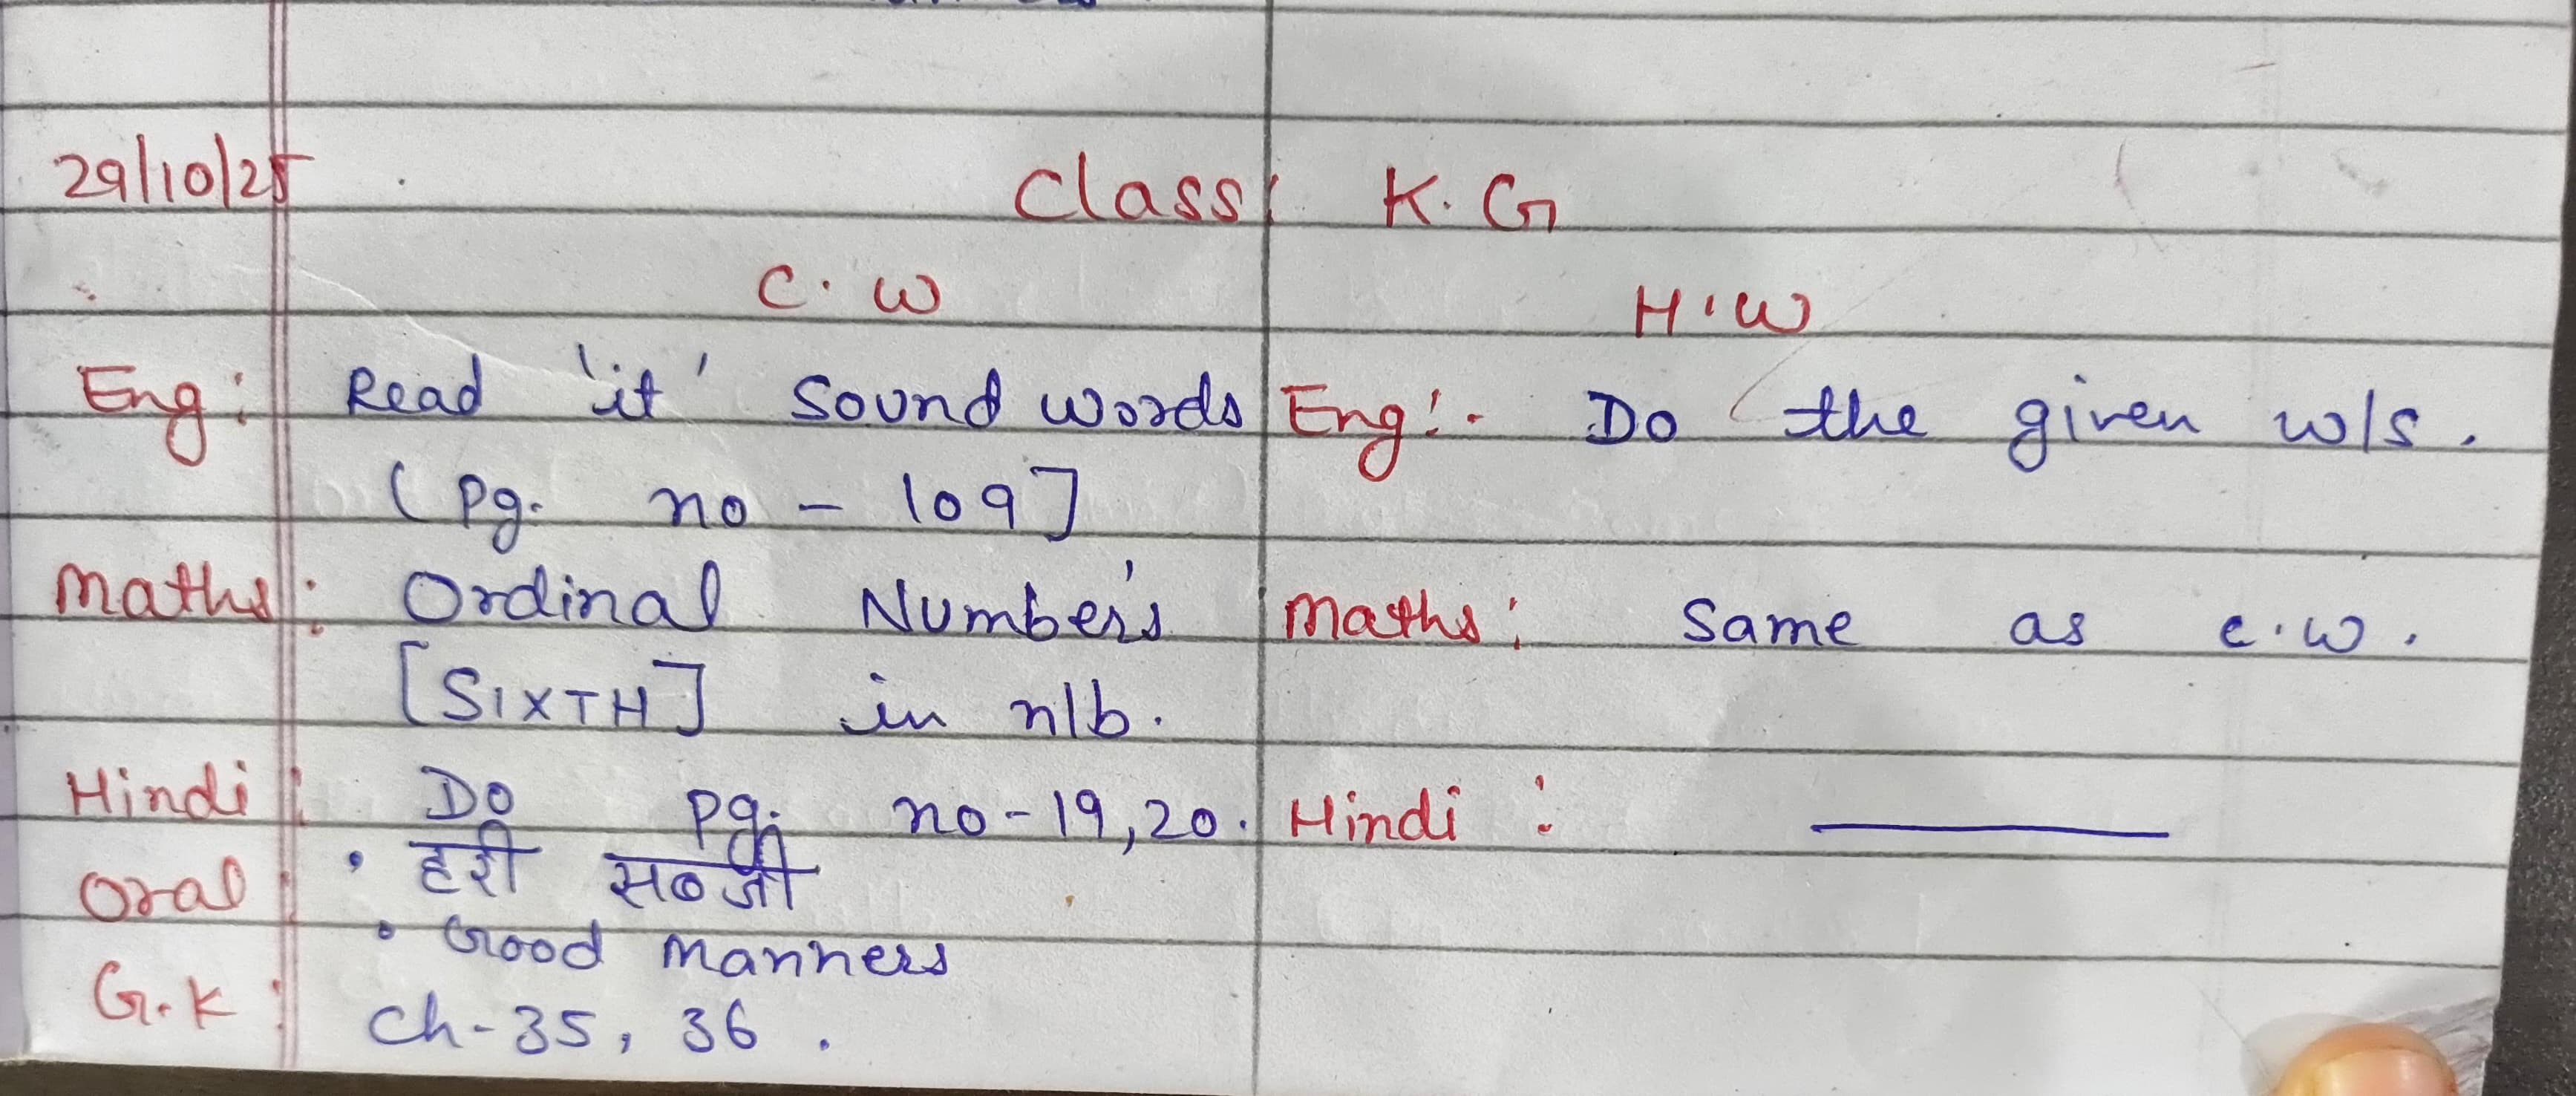 29/10/25 Class: K.G
C.W H.W
Eng: Read 'it' Sound words Eng:- Do the given w/s.
(Pg. no - 109]
Maths: Ordinal Number's Maths: Same as c.w.
[SIXTH] in n/b.
Hindi: Do pg. no-19,20. Hindi: ———
Oral: • हरी सब्जी
• Good manners
G.K: Ch-35, 36.